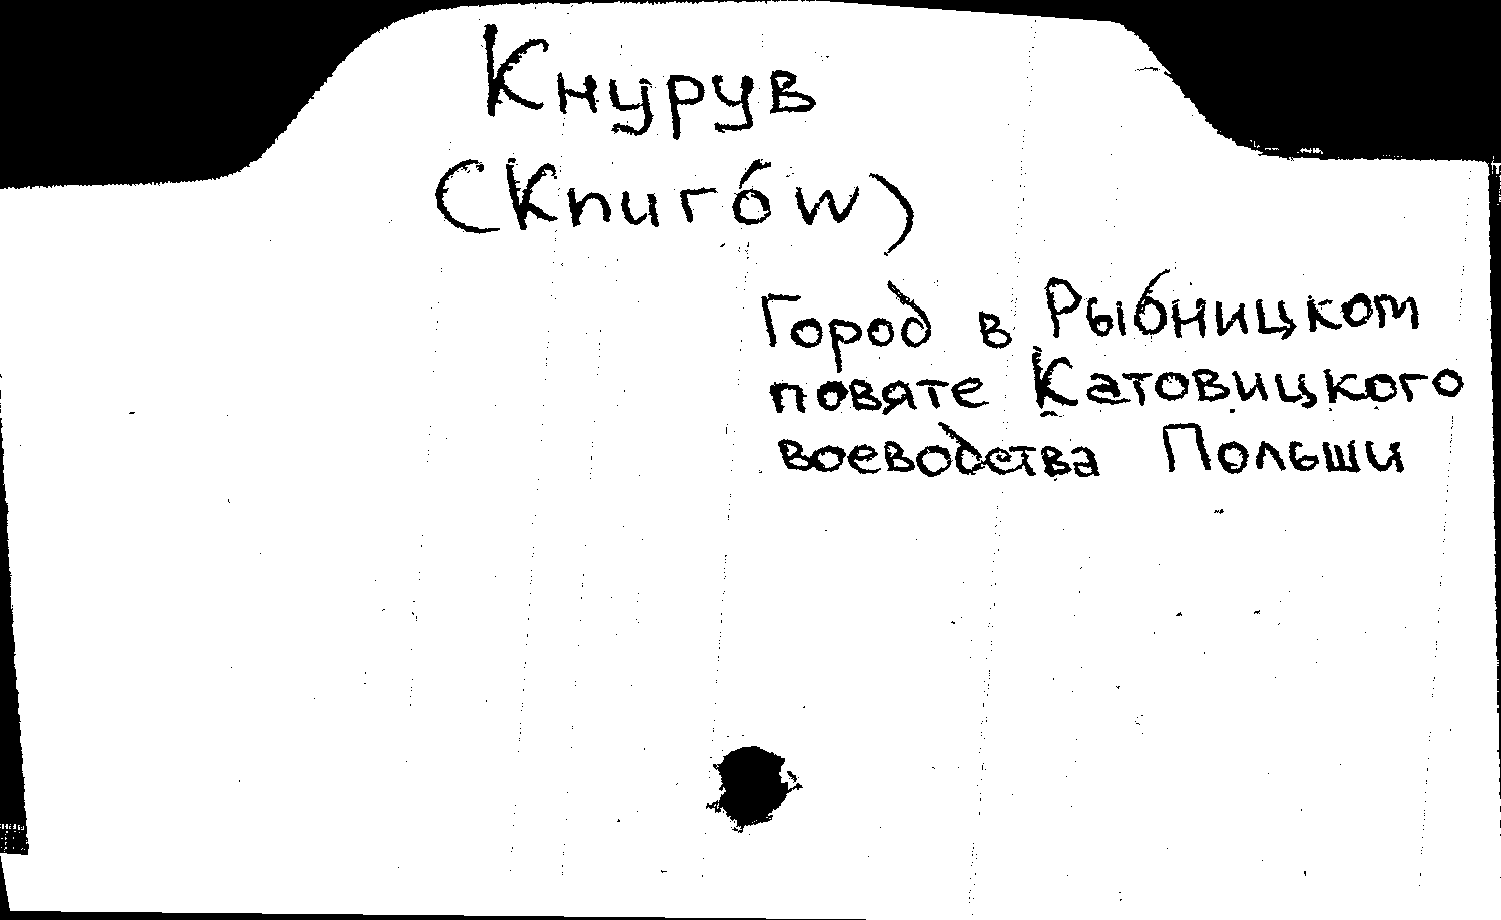 Кнурув
(Knurów)
Город в Рыбницком
повяте Катовицкого
воеводства Польши